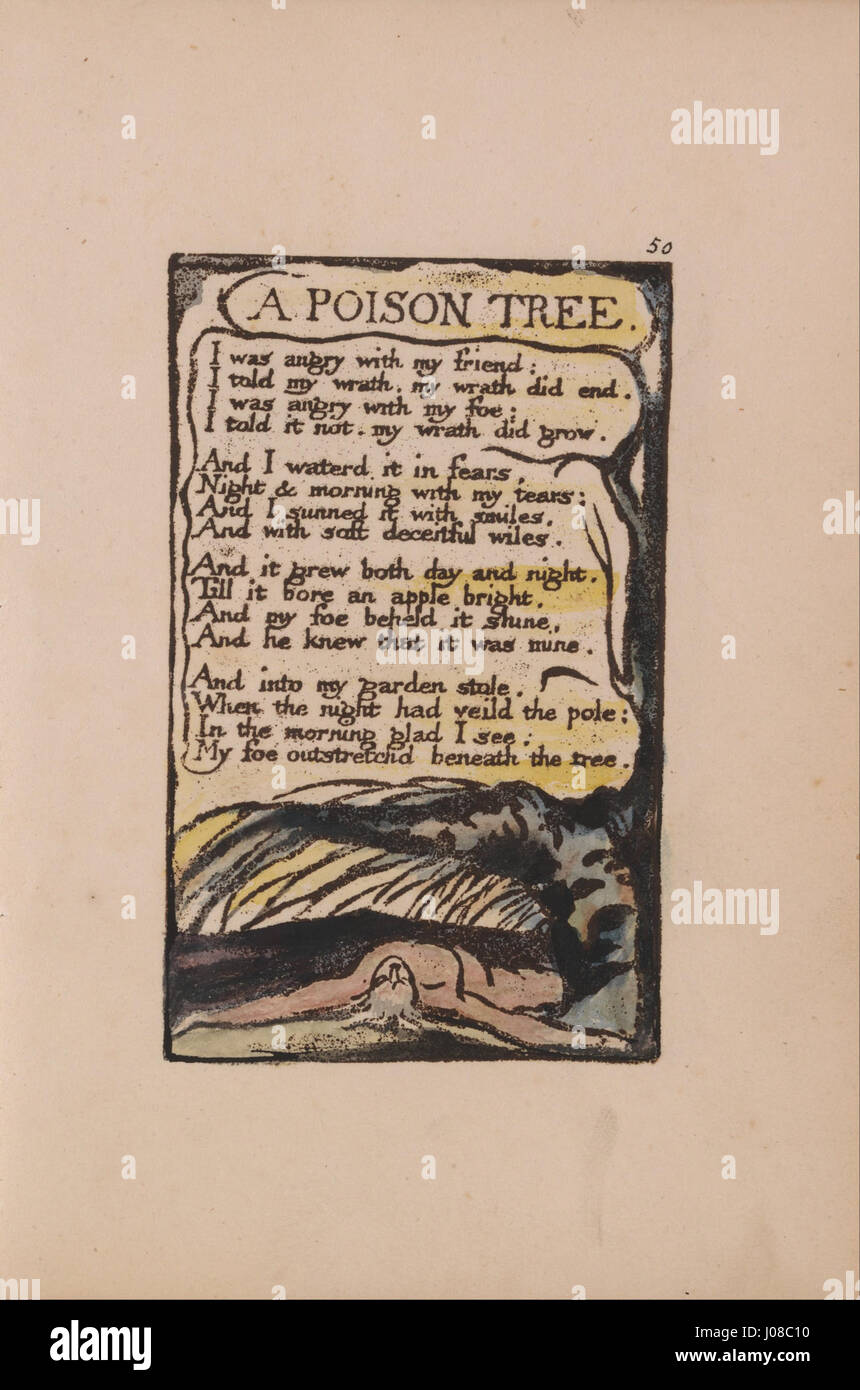 50
A POISON TREE.
I was angry with my friend:
I told my wrath, my wrath did end.
I was angry with my foe:
I told it not. my wrath did grow.
And I waterd it in fears,
Night & morning with my tears:
And I sunned it with smiles,
And with soft deceitful wiles.
And it grew both day and night,
Till it bore an apple bright.
And my foe beheld it shine,
And he knew that it was mine.
And into my garden stole,
When the night had veild the pole:
In the morning glad I see;
My foe outstretchd beneath the tree.
a
a
alamy
a
a
alamy
a
a
alamy
a
a
alamy
a
a
a
alamy
Image ID: J08C10
www.alamy.com